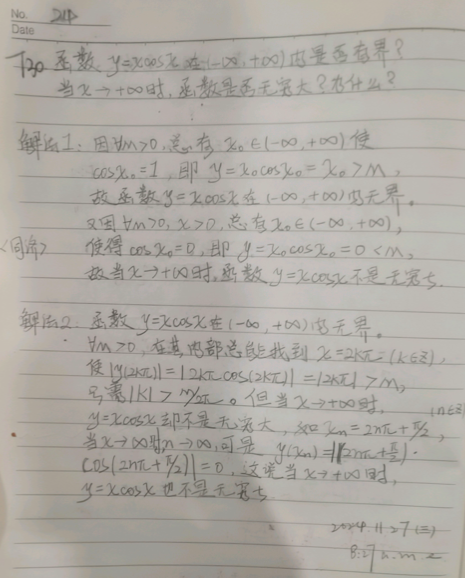 No. 21P
Date
T20 函数 y=xcosx 在(-∞, +∞)内是否有界?
当 x→+∞时, 函数是否无穷大? 为什么?
解法1: 因∀M>0, 总有 x₀∈(-∞, +∞) 使
cosx₀=1, 即 y=x₀cosx₀=x₀>M,
故函数 y=xcosx 在 (-∞, +∞)内无界。
又因∀M>0, x>0, 总有x₀∈(-∞, +∞),
<同济> 使得 cosx₀=0, 即 y=x₀cosx₀=0<M,
故当x→+∞时, 函数 y=xcosx 不是无穷大.
解法2. 函数 y=xcosx在(-∞, +∞)内无界。
∀M>0, 在其内部总能找到 x=2kπ=(k∈Z),
使|y(2kπ)|=|2kπcos(2kπ)|=|2kπ|>M,
只需|k|>M/2π。但当 x→+∞时,
y=xcosx 却不是无穷大, 如 xₙ=2nπ+π/2, (n∈Z)
当x→∞时n→∞, 可是 y(xₙ)=|(2nπ+π/2)·
cos(2nπ+π/2)|=0, 这说当x→+∞时,
y=xcosx 也不是无穷大
2024.11.27(三)
8:27 a.m